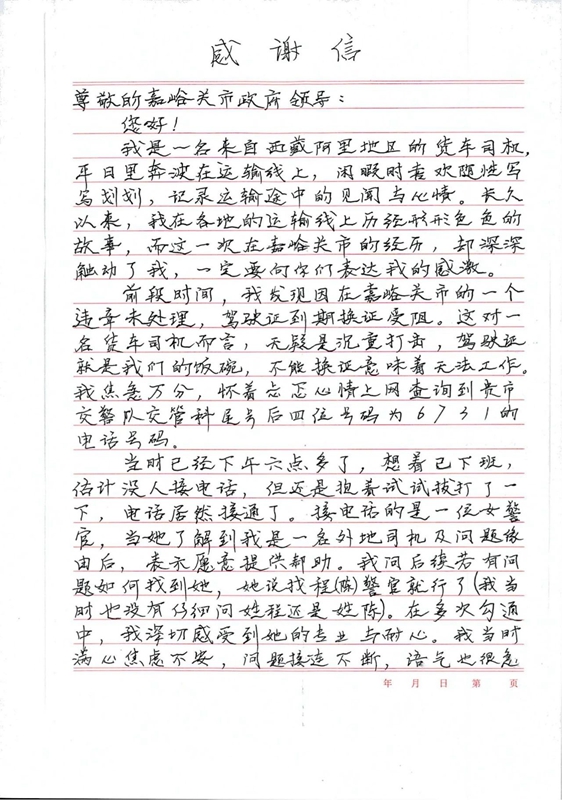 感谢信
尊敬的嘉峪关市政府领导：
您好！
我是一名来自西藏阿里地区的货车司机，
平日里奔波在运输线上，闲暇时喜欢随性写
写划划，记录运输途中的见闻与心情。长久
以来，我在各地的运输线上历经形形色色的
故事，而这一次在嘉峪关市的经历，却深深
触动了我，一定要向你们表达我的感激。
前段时间，我发现因在嘉峪关市的一个
违章未处理，驾驶证到期换证受阻。这对一
名货车司机而言，无疑是沉重打击，驾驶证
就是我们的饭碗，不能换证意味着无法工作。
我焦急万分，怀着忐忑心情上网查询到贵市
交警队交管科尾号后四位号码为6731的
电话号码。
当时已经下午六点多了，想着已下班，
估计没人接电话，但还是抱着试试拨打了一
下，电话居然接通了。接电话的是一位女警
官，当她了解到我是一名外地司机及问题缘
由后，表示愿意提供帮助。我问后续若有问
题如何找到她，她说找程(陈)警官就行了(我当
时也没有仔细问姓程还是姓陈)。在多次沟通
中，我深切感受到她的专业与耐心。我当时
满心焦虑不安，问题接连不断，语气也很急
年 月 日 第 页